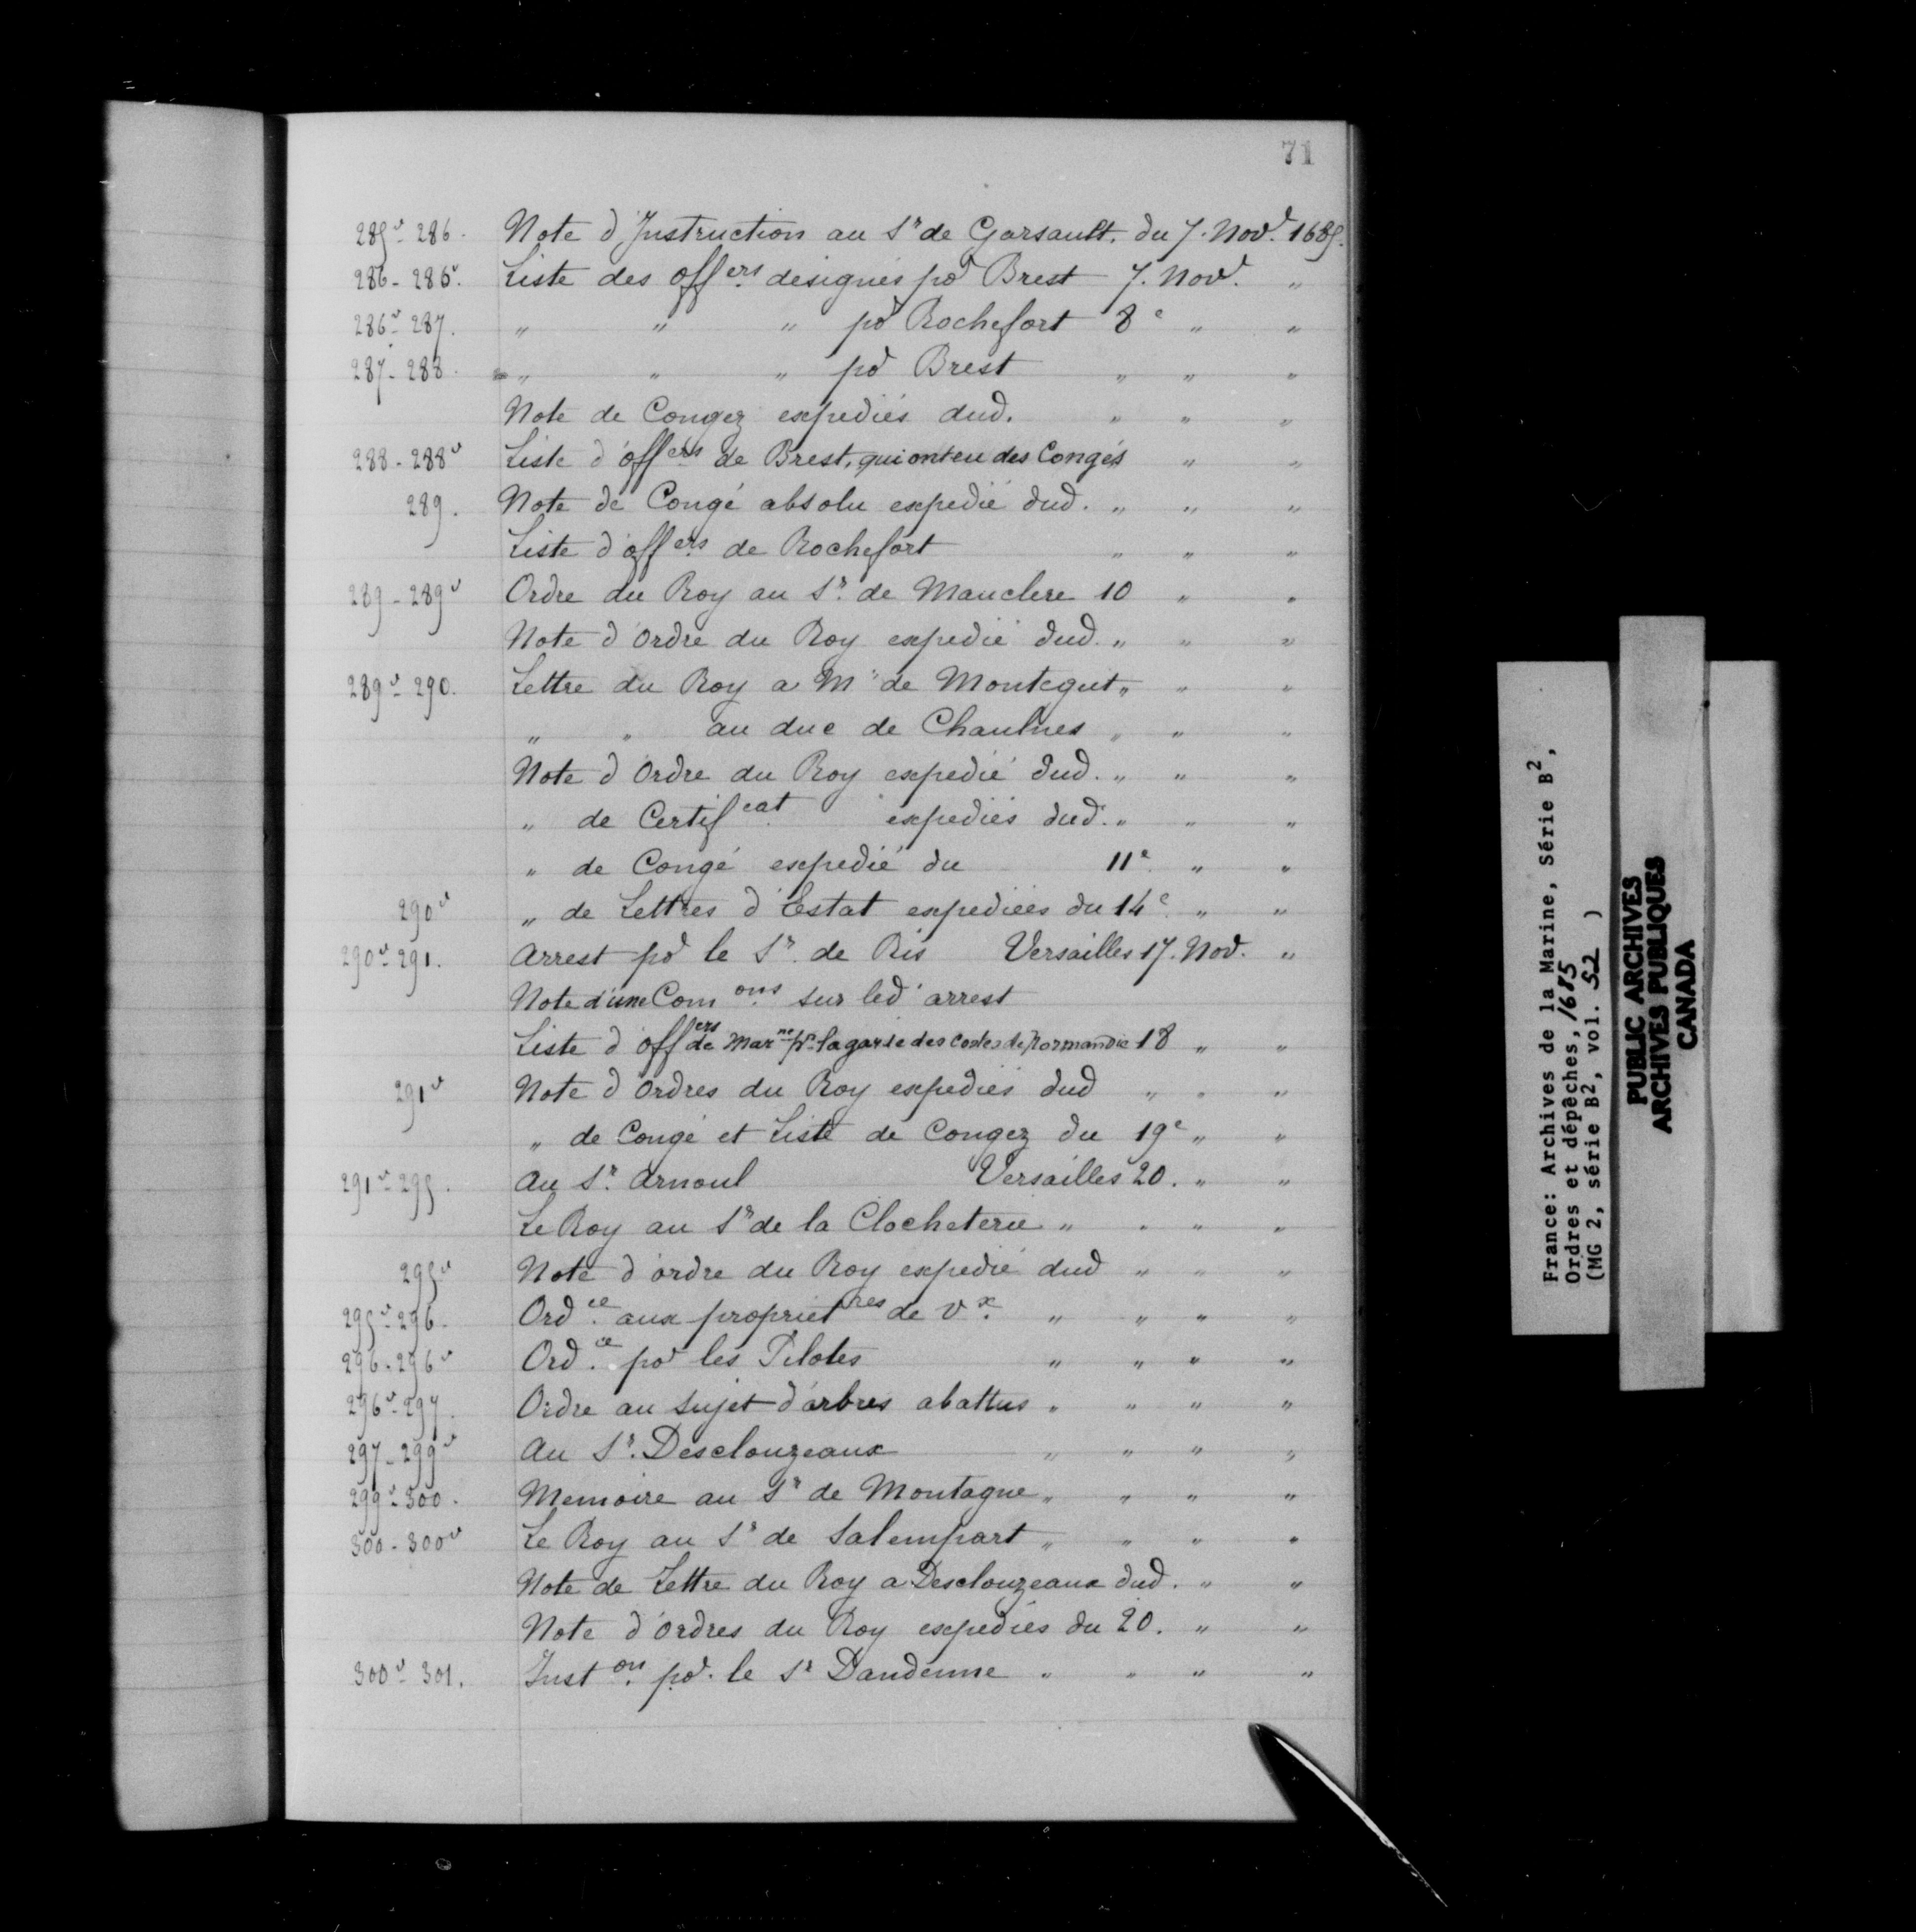 71
285v - 286. Note d'Instruction au Sr de Garsault. du 7. Novr. 1685.
286 - 286v. Liste des offers. designés pr Brest 7. Novr. "
286v - 287. " " " pr Rochefort 8e " "
287 - 288. " " " pr Brest " " "
Note de Congez expediés dud. " " "
288 - 288v Liste d'offers de Brest, qui ont eu des Congés " "
289. Note de Congé absolu expedié dud. " " "
Liste d'offers de Rochefort " " "
289 - 289v Ordre du Roy au Sr. de Mauclere 10 " "
Note d'ordre du Roy expedié dud. " " "
289v - 290. Lettre du Roy a Mr de Montegut " " "
" " au duc de Chaulnes " " "
Note d'ordre du Roy expedié dud. " " "
" de Certificat. expediés dud. " " "
" de Congé expedié du 11e. " "
290v " de Lettres d'Estat expediées du 14e. " "
290v - 291. Arrest pr le Sr. de Ris Versailles 17. Nov. "
Note d'une Comons. sur led. arrest
Liste d'offers de Marne pr la garde des costes de Normandie 18 " "
291v Note d'ordres du Roy expediés dud " " "
" de Congé et Liste de Congez du 19e " "
291v - 295. Au Sr. Arnoul Versailles 20. " "
Le Roy au Sr de la Clocheterie " " " "
295v Note d'ordre du Roy expedié dud " " "
295v - 296. Ordce. aux proprietres de vx. " " " "
296 - 296v Ordce. pr les Pilotes " " " "
296v - 297. Ordre au sujet d'arbres abattus " " " "
297 - 299v Au Sr. Desclouzeaux " " " "
299v - 300. Memoire au Sr de Montagne " " " "
300 - 300v Le Roy au Sr de Salempart " " " "
Note de Lettre du Roy a Desclouzeaux dud. " "
Note d'ordres du Roy expediés du 20. " "
300v - 301. Inston. pr. le Sr Dandenne " " " "
France: Archives de la Marine, Série B2,
Ordres et dépêches, 1685
(MG 2, série B2, vol. 52 )
PUBLIC ARCHIVES
ARCHIVES PUBLIQUES
CANADA